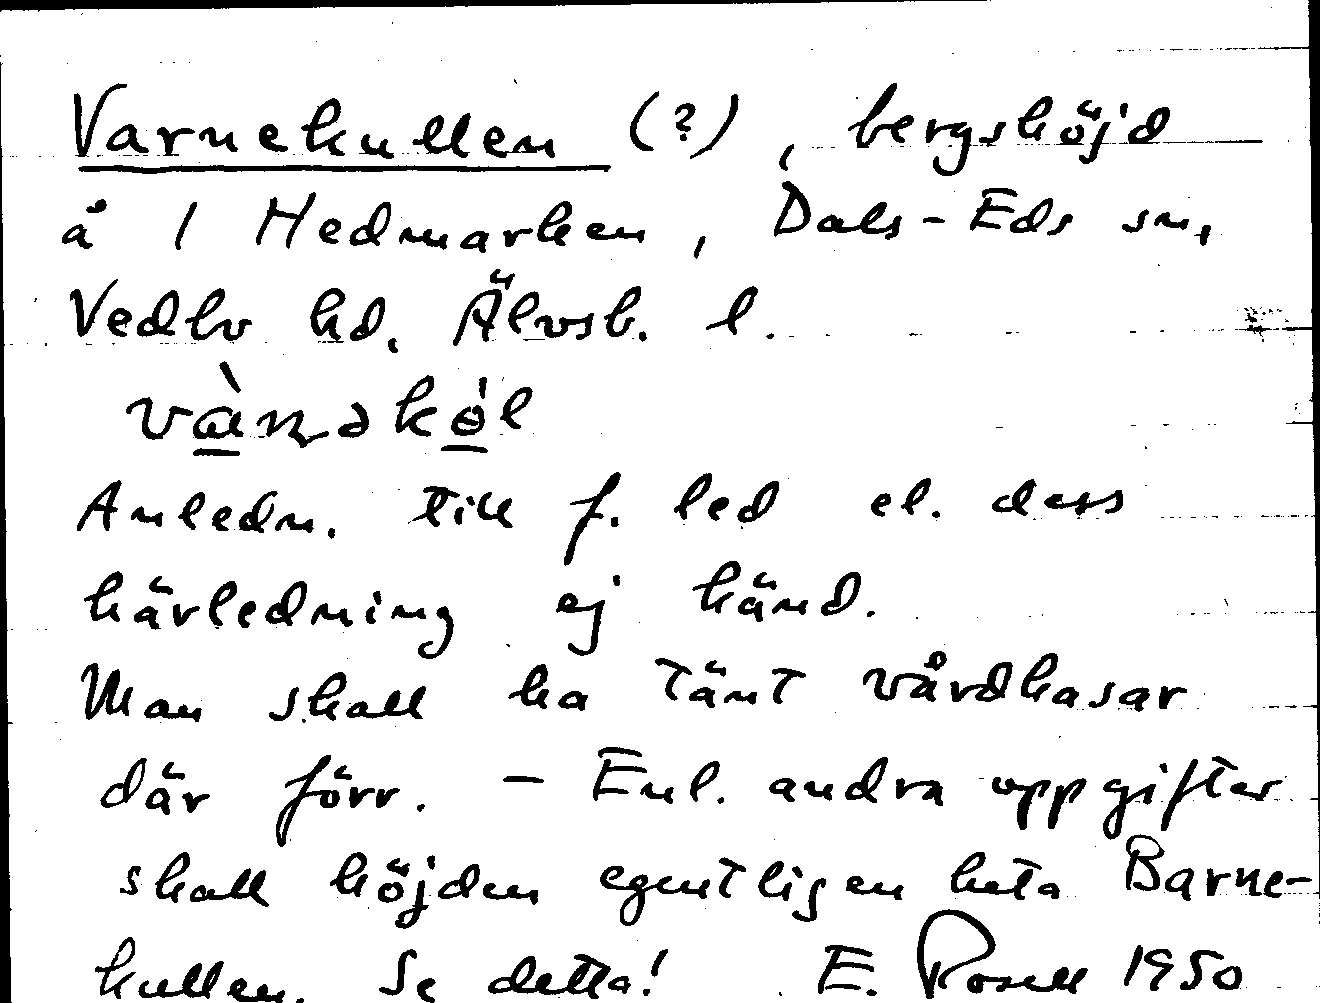 Varnekullen (?), bergshöjd
å 1 Hedmarken, Dals-Eds sn,
Vedbo hd. Älvsb. l.
Anledn. till f. led el. dess
härledning ej känd.
Man skall ha tänt vårdkasar
där förr. - Enl. andra uppgifter
skall höjden egentligen heta Barne-
kullen. Se detta! E. Rosell 1950